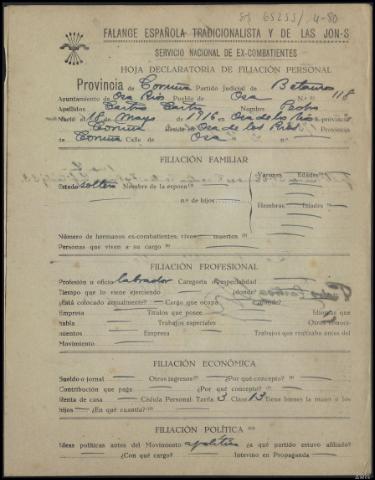 FALANGE ESPAÑOLA TRADICIONALISTA Y DE LAS JON-S
SERVICIO NACIONAL DE EX-COMBATIENTES
HOJA DECLARATORIA DE FILIACIÓN PERSONAL
Provincia de Coruña Partido Judicial de Betanzos
Ayuntamiento de Osa Rios Pueblo de Osa N.º 118
Apellidos Castro Castro Nombre Pedro
Nació el 18 de Mayo de 1916 en Osa de los Rios provincia
Coruña donde en Osa de los Rios Provincia
Coruña Calle de Osa
FILIACIÓN FAMILIAR
Estado soltero Nombre de la esposa
Varones Edades
n.º de hijos
Hembras Edades
Número de hermanos ex-combatientes: vivos muertos
Personas que viven a su cargo
FILIACIÓN PROFESIONAL
Profesión u oficio labrador Categoría o especialidad
Tiempo que lo viene ejerciendo ¿dónde
¿Está colocado actualmente? Cargo que ocupa
Empresa Títulos que posee Idiomas que
habla Trabajos especiales Otros conoci-
mientos Empresa Trabajos que realizaba antes del
Movimiento
FILIACIÓN ECONÓMICA
Sueldo o jornal Otros ingresos? ¿Por qué concepto?
Contribución que paga ¿Por qué concepto?
Renta de casa Cédula Personal: Tarifa 3 Clase 13 Tiene bienes la mujer o los
hijos ¿En qué cuantía?
FILIACIÓN POLÍTICA
Ideas políticas antes del Movimiento apolítico ¿a qué partido estuvo afiliado?
¿Con qué cargo? Intervino en Propaganda